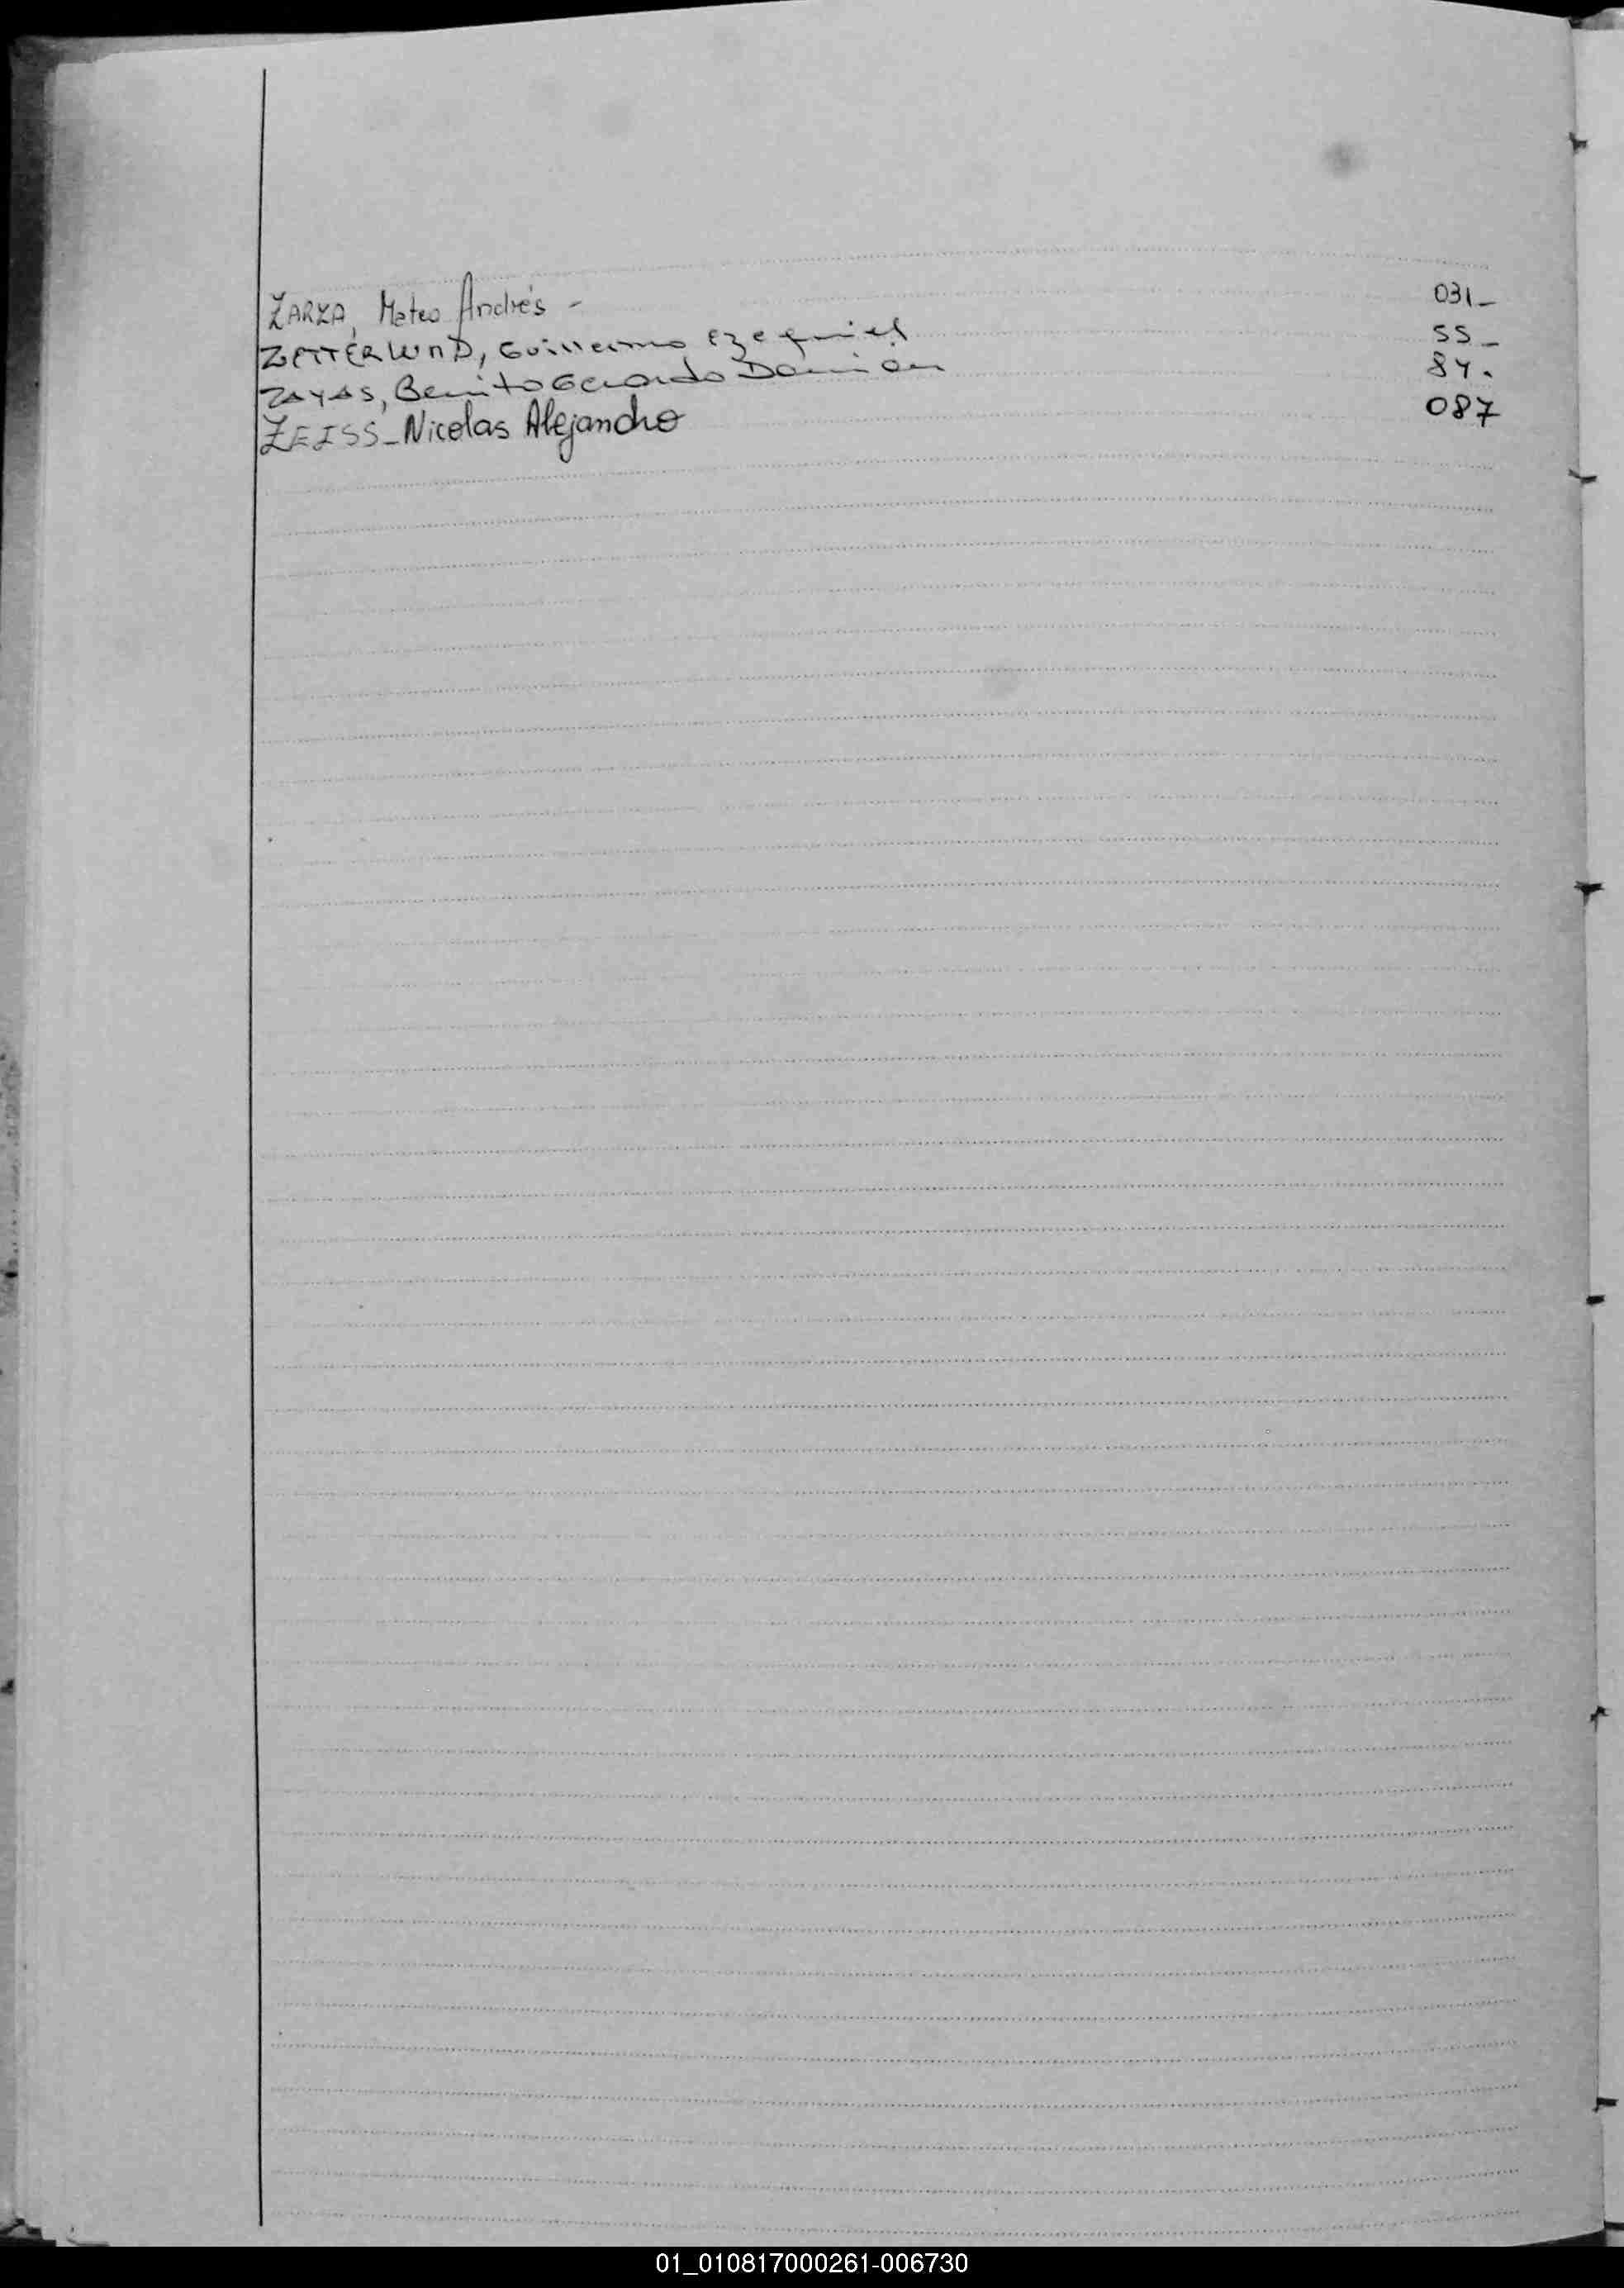 ZARZA, Mateo Andrés - 031_
ZETTERLUND, Guillermo Ezequiel 55_
ZAYAS, Benito Gerardo Damián 84.
ZEISS_Nicolas Alejandro 087
01_010817000261-006730